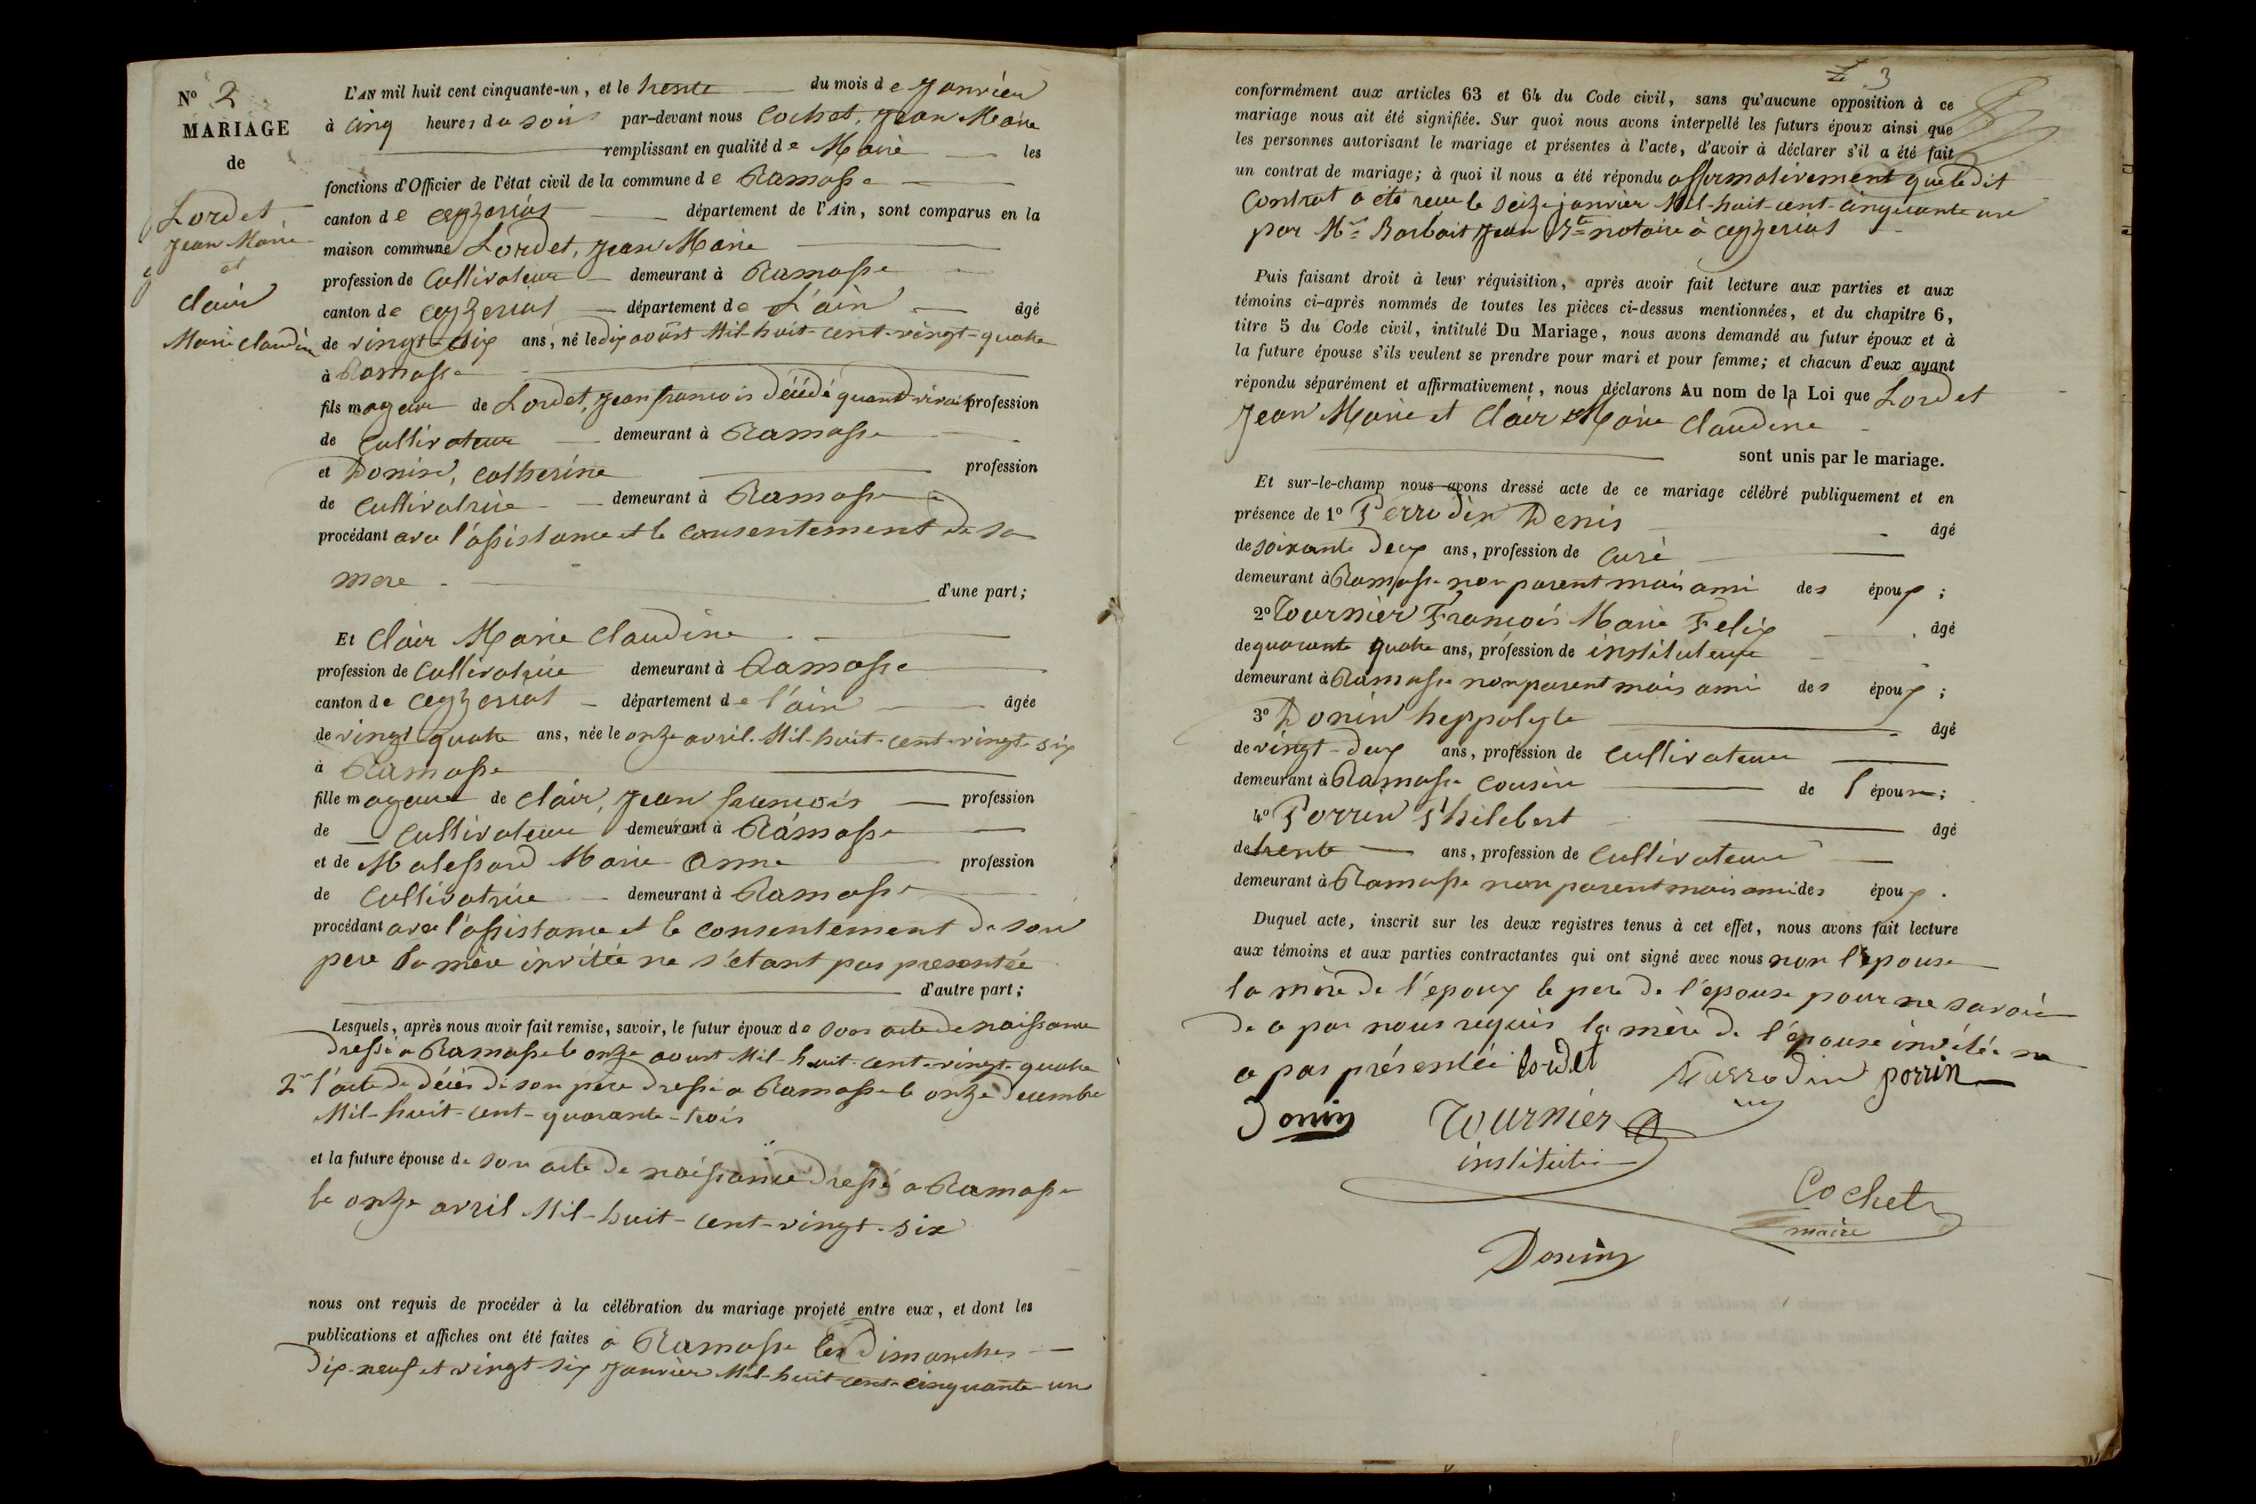 N° 2
MARIAGE
de
Lordet,
Jean Marie
et
Clair
Marie Claudine
L'AN mil huit cent cinquante-un, et le trente du mois de Janvier
à cinq heures du soir par-devant nous Cochet, Jean Marie
remplissant en qualité de Maire les
fonctions d'Officier de l'état civil de la commune de Ramasse
canton de Ceyzeriat département de l'Ain, sont comparus en la
maison commune Lordet, Jean Marie
profession de Cultivateur demeurant à Ramasse
canton de Ceyzeriat département de L'ain âgé
de vingt-six ans, né le dix août Mil-huit-cent-vingt-quatre
à Ramasse
fils mageur de Lordet, Jean francois décédé quand vivait profession
de Cultivateur demeurant à Ramasse
et Donin, Catherine profession
de Cultivatrice demeurant à Ramasse
procédant avec l'assistance et le consentement de sa
mere d'une part;
Et Clair Marie Claudine
profession de Cultivatrice demeurant à Ramasse
canton de Ceyzeriat département de l'ain âgée
de vingt quatre ans, née le onze avril Mil-huit-cent-vingt-six
à Ramasse
fille mageure de Clair, Jean francois profession
de Cultivateur demeurant à Ramasse
et de Malessard Marie Anne profession
de Cultivatrice demeurant à Ramasse
procédant avec l'assistance et le consentement de son
pere la mère invitée ne s'étant pas presentée
d'autre part;
Lesquels, après nous avoir fait remise, savoir, le futur époux de son acte de naissance
dressé a Ramasse le onze aoust Mil-huit-cent-vingt-quatre
2° l'acte de décès de son père dressé a Ramasse le onze Decembre
Mil-huit-cent-quarante-trois
et la future épouse de son acte de naissance dressé a Ramasse
le onze avril Mil-huit-cent-vingt-six
nous ont requis de procéder à la célébration du mariage projeté entre eux, et dont les
publications et affiches ont été faites a Ramasse les Dimanches
dix-neuf et vingt-six Janvier Mil-huit-cent-cinquante-un
3
conformément aux articles 63 et 64 du Code civil, sans qu'aucune opposition à ce
mariage nous ait été signifiée. Sur quoi nous avons interpellé les futurs époux ainsi que
les personnes autorisant le mariage et présentes à l'acte, d'avoir à déclarer s'il a été fait
un contrat de mariage; à quoi il nous a été répondu affirmativement que ledit
Contrat a été recu le seize janvier Mil-huit-cent-cinquante un
par Mr Barbait Jean Bte notaire à Ceyzeriat
Puis faisant droit à leur réquisition, après avoir fait lecture aux parties et aux
témoins ci-après nommés de toutes les pièces ci-dessus mentionnées, et du chapitre 6,
titre 5 du Code civil, intitulé Du Mariage, nous avons demandé au futur époux et à
la future épouse s'ils veulent se prendre pour mari et pour femme; et chacun d'eux ayant
répondu séparément et affirmativement, nous déclarons Au nom de la Loi que Lordet
Jean Marie et Clair Marie Claudine
sont unis par le mariage.
Et sur-le-champ nous avons dressé acte de ce mariage célébré publiquement et en
présence de 1° Perrodin Denis âgé
de soixante Deux ans, profession de Curé
demeurant à Ramasse non parent mais ami des époux;
2° Tournier François Marie Felix âgé
de quarante quatre ans, profession de instituteur
demeurant à Ramasse non parent mais ami des époux;
3° Donin hyppolyte âgé
de vingt-Deux ans, profession de Cultivateur
demeurant à Ramasse Cousin de l'épouse;
4° Porrin Philebert âgé
de trente ans, profession de Cultivateur
demeurant à Ramasse non parent mais ami des époux.
Duquel acte, inscrit sur les deux registres tenus à cet effet, nous avons fait lecture
aux témoins et aux parties contractantes qui ont signé avec nous non l'epouse
la mère de l'époux le pere de l'épouse pour ne savoir
de a par nous requis la mère de l'épouse invitée ne
a pas présentée Lordet Perrodin porrin
Donin Tournier
institute
Cochet
maire
Donin